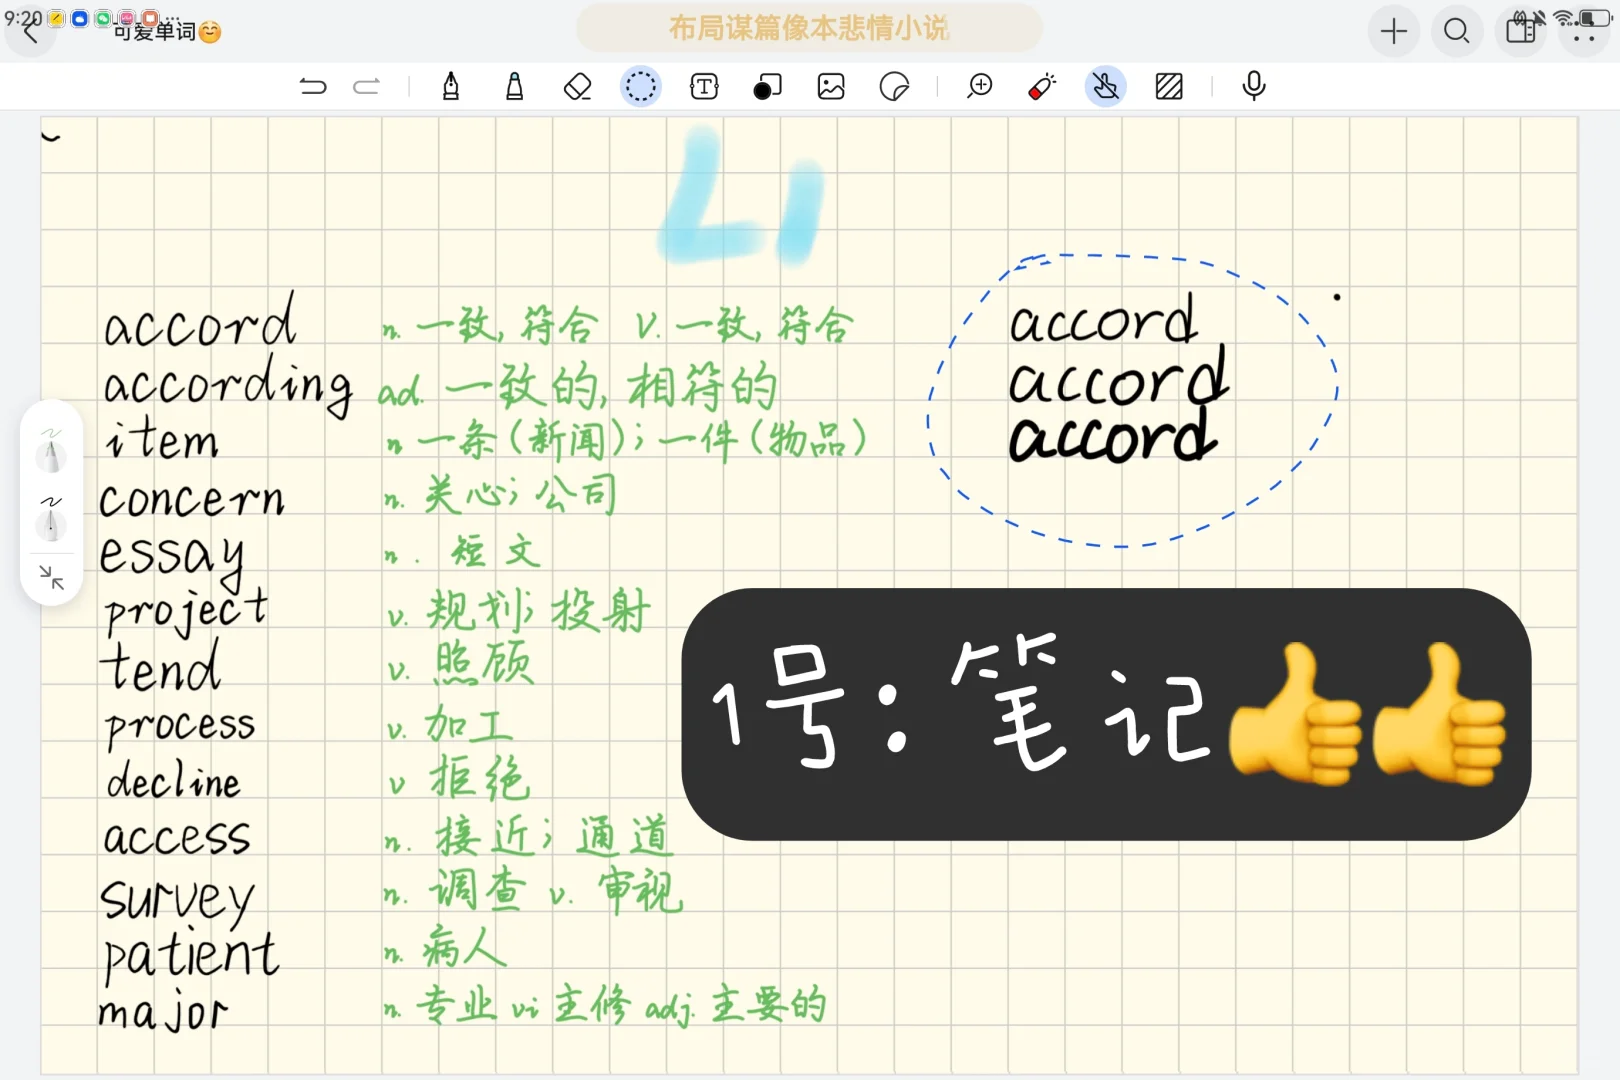 9:20
可爱单词😊
布局谋篇像本悲情小说
L1
accord n. 一致, 符合 V. 一致, 符合
according ad. 一致的, 相符的
item n 一条(新闻); 一件(物品)
concern n. 关心; 公司
essay n. 短文
project v. 规划; 投射
tend v. 照顾
process v. 加工
decline v 拒绝
access n. 接近; 通道
survey n. 调查 v. 审视
patient n. 病人
major n. 专业 vi 主修 adj. 主要的
accord
accord
accord
1号: 笔记👍👍